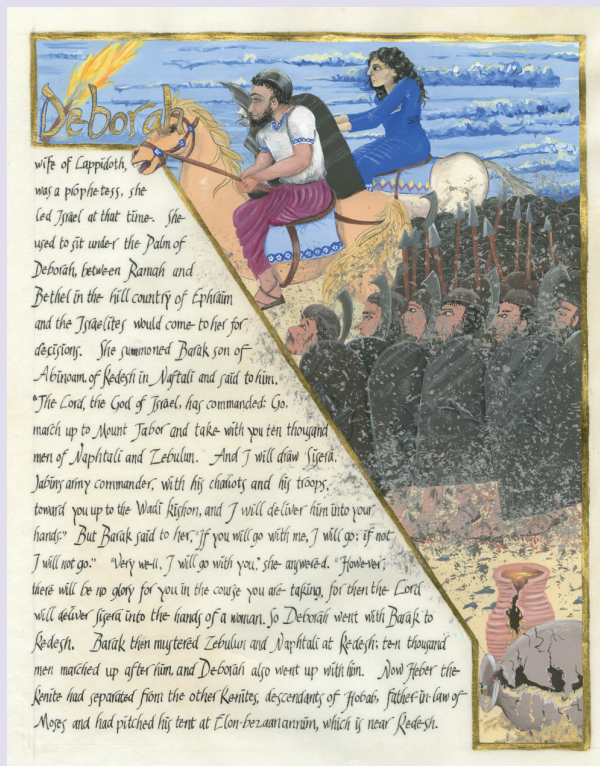 Deborah
wife of Lappidoth,
was a prophetess, she
led Israel at that time. She
used to sit under the Palm of
Deborah, between Ramah and
Bethel in the hill country of Ephraim
and the Israelites would come to her for
decisions. She summoned Barak son of
Abinoam, of Kedesh in Naftali and said to him,
"The Lord, the God of Israel, has commanded: Go,
march up to Mount Tabor and take with you ten thousand
men of Naphtali and Zebulun. And I will draw Sisera,
Jabins army commander, with his chariots and his troops,
toward you up to the Wadi Kishon, and I will deliver him into your
hands." But Barak said to her, "If you will go with me, I will go; if not
I will not go." "Very well, I will go with you," she answered. "However,
there will be no glory for you in the course you are taking, for then the Lord
will deliver Sisera into the hands of a woman. So Deborah went with Barak to
Kedesh. Barak then mustered Zebulun and Naphtali at Kedesh; ten thousand
men marched up after him, and Deborah also went up with him. Now Heber the
Kenite had separated from the other Kenites, descendants of Hobab, father-in-law of
Moses and had pitched his tent at Elon-bezaanannim, which is near Kedesh.